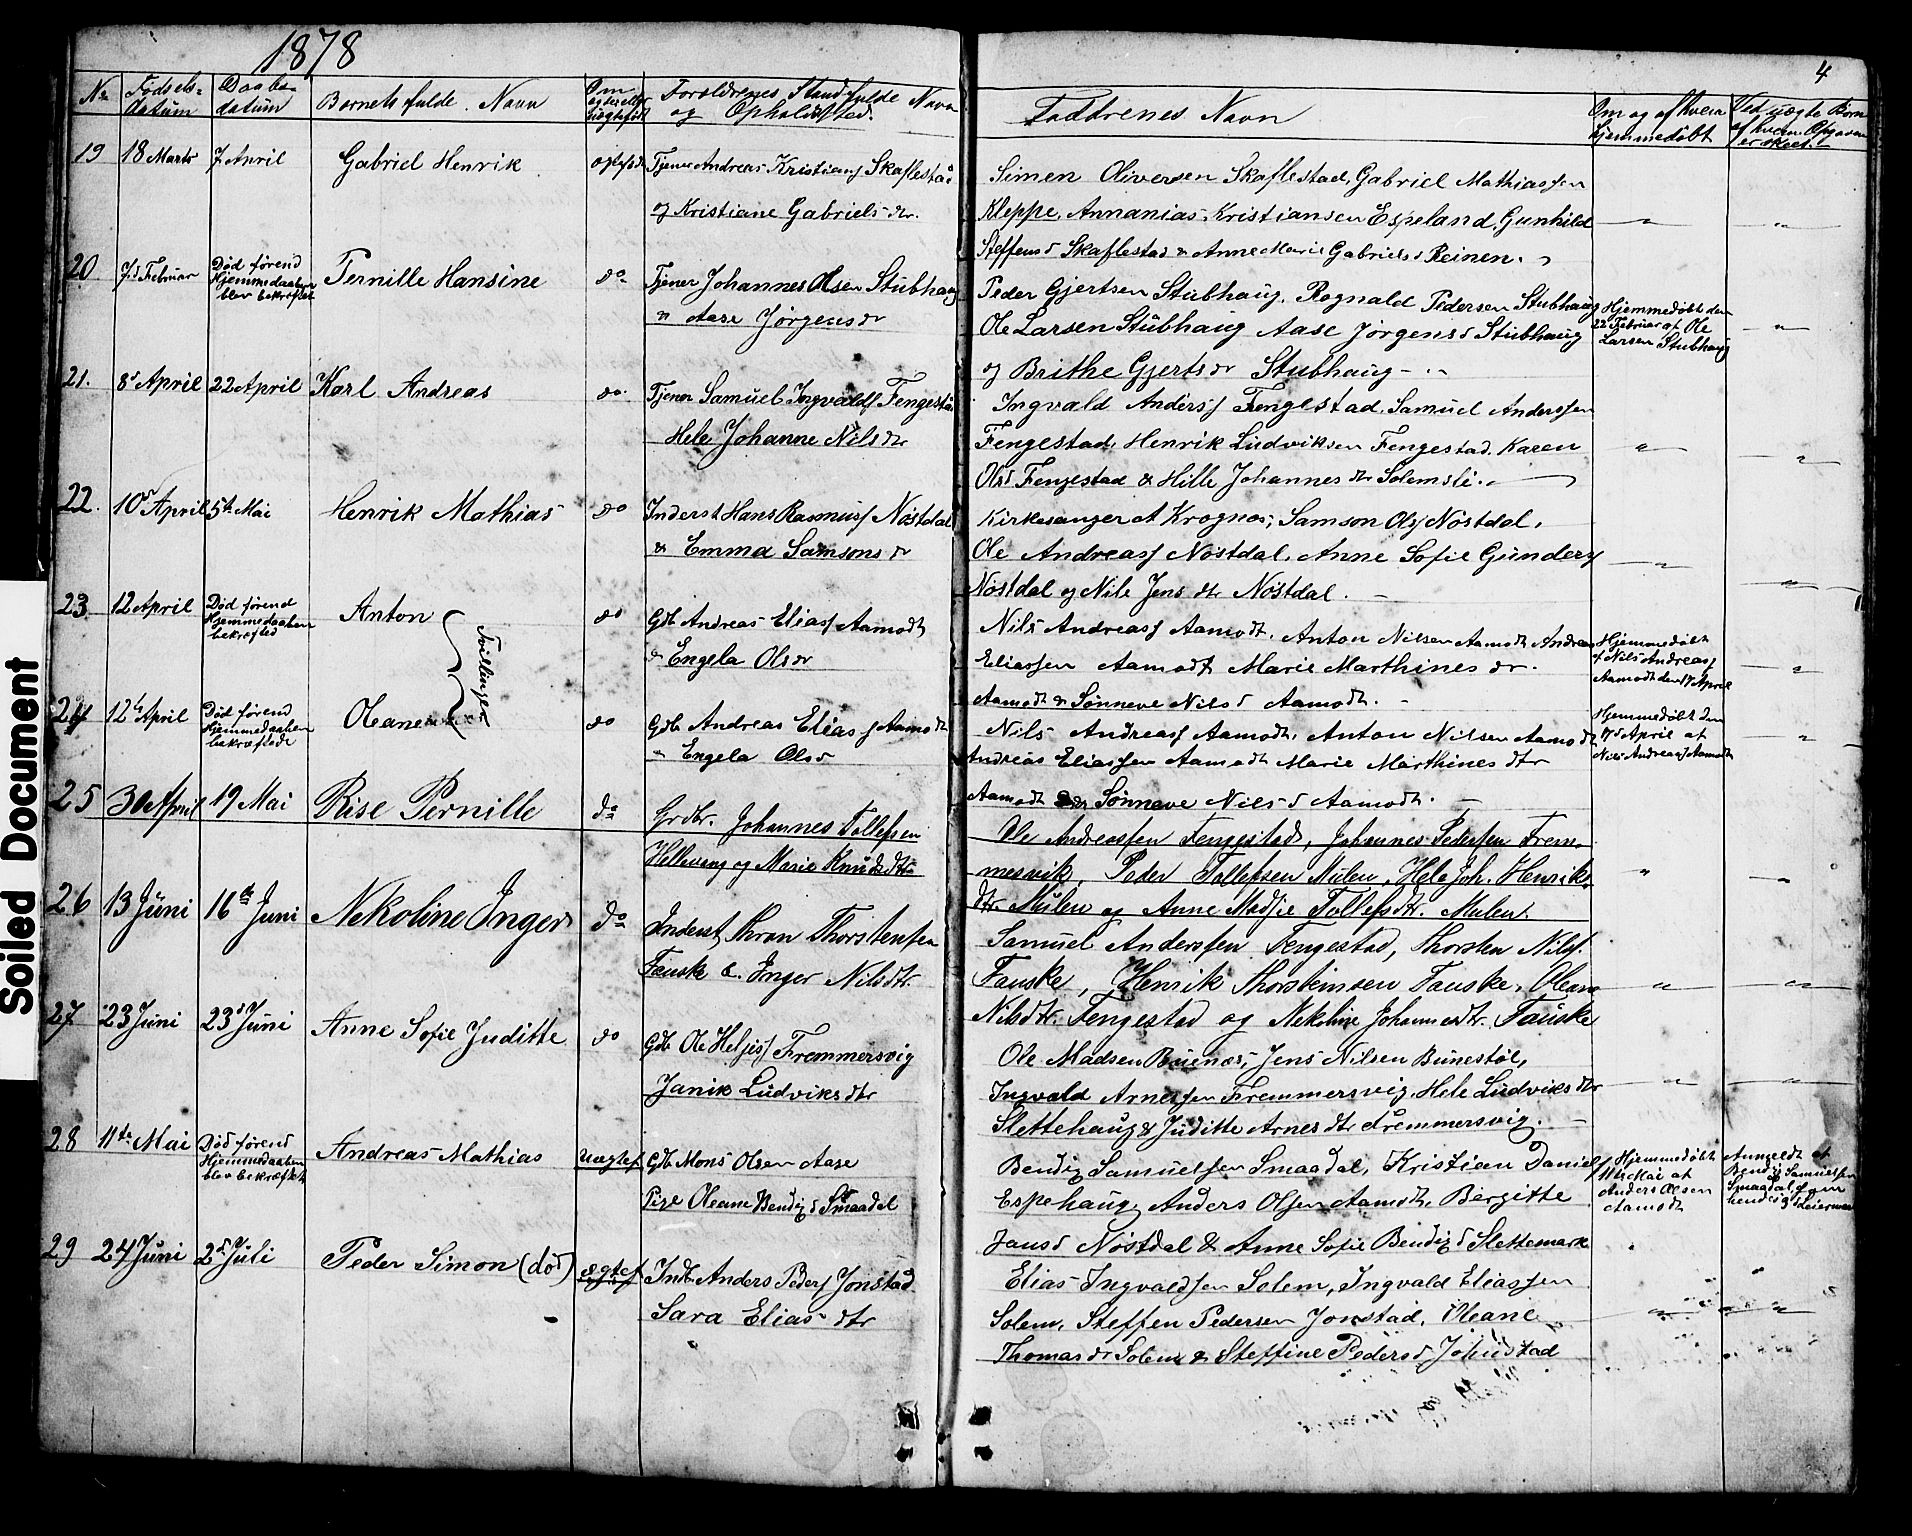 1878
4
No Fødsels- datum Daabs- datum Barnets fulde Navn Om ægte eller uægtefødt Forældrenes Stand fulde Navn og Opholdssted. Faddrenes Navn Om og af hvem hjemmedøbt Ved uægte Børn af hvem Opgaven er skeet.
19 18 Marts 7 April Gabriel Henrik ægtefødt Tjener Andreas Kristians Skaflestad
og Kristiane Gabriels dr.
Simen Oliversen Skaflestad, Gabriel Mathiassen
Kleppe, Annanias Kristiansen Espeland, Gunhild
Steffensd Skaflestad & Anne Marie Gabrielsd Reinen.
20 7d Februar Død førend Hjemmedaaben blev bekræftet Pernille Hansine do Tjener Johannes Olsen Stubhaug
& Aase Jørgensdr
Peder Gjertsen Stubhaug, Rognald Pedersen Stubhaug
Ole Larsen Stubhaug Aase Jørgensd Stubhaug
og Brithe Gjertsdr Stubhaug
Hjemmedøbt den
22 Februar af Ole
Larsen Stubhaug
21. 8d April 22 April Karl Andreas do Tjener Samuel Ingvalds Fengestad
Hele Johanne Nilsdr
Ingvald Anders Fengestad, Samuel Anderssen
Fengestad, Henrik Ludviksen Fengestad, Karen
Olsd Fengestad & Hille Johannes dr Solemsli.
22. 10d April 5te Mai Henrik Mathias do Inderst Hans Rasmuss Nøstdal
& Emma Samsons dr
Kirkesanger at Krognæs, Samson Ols Nøstdal,
Ole Andreass Nøstdal, Anne Sofie Gunders
Nøstdal og Nile Jens dtr Nøstdal.
23 12 April Død førend Hjemmedaaben bekræfted Anton do Gdb Andreas Eliass Aamodt
& Engela Olsdr
Nils Andreass Aamodt, Anton Nilsen Aamodt Andreas
Eliassen Aamodt Marie Marthines dr.
Aamodt & Sønneve Nilsd Aamodt.
Hjemmedøbt
af Nils Andreass
Aamodt den 17 April
Tvillinger
24 12te April Død førend Hjemmedaaben bekræftede Oleane do Gdb Andreas Elias s Aamodt
Engela Olsd
Nils Andreass Aamodt, Anton Nilsen Aamodt
Andreas Eliassen Aamodt Marie Marthines dtr
Aamodt & Sønneve Nilsd Aamodt.
Hjemmedøbt den
17d April af
Nils Andreass Aamodt
25 30 April 19 Mai Rise Pernille do Grdbr. Johannes Tollefsen
Hellevang og Marie Knudsdtr
Ole Andreassen Fengestad, Johannes Pedersen Frem-
mesvik, Peder Tollefsen Mulen, Hele Joh. Henriks-
dtr. Mulen og Anne Madsie Tollefsdtr. Mulen.
26 13 Juni 16de Juni Nekoline Inger do Inderst Thron Thorstensen
Fauske & Inger Nilsdtr.
Samuel Anderssen Fengestad, Thorsten Nils.
Fauske, Henrik Thorsteinsen Fauske, Oleane
Nilsdtr. Fengestad og Nekoline Johannesdtr. Fauske
27 23 Juni 23d Juni Anne Sofie Juditte do Gdb Ole Helgess Fremmersvig
Janik Ludviks dtr
Ole Madsen Buenæs, Jens Nilsen Bunestøl,
Ingvald Arnessen Fremmersvig, Hele Ludviks dtr
Slettehaug & Juditte Arnes dtr Fremmersvig.
28 11te Mai Død førend Hjemmedaaben blev bekræftet Andreas Mathias uægtef Gdb Mons Olsen Aase
Pige Oleane Bendigsd Smaadal
Bendig Samuelsen Smaadal, Kristian Daniels
Espehaug, Anders Olsen Aamodt, Birgitte
Jansd Nøstdal & Anne Sofie Bendigsd Slettemark
Hjemmedøbt
11te Mai af
Anders Olsen
Aamodt
Anmeldt af
Bendig Samuelsen
Smaadal som
hendes Leiermaal
29 24 Juni 2d Juli Peder Simon (død) ægtef Indr Anders Peders Jonstad
Sara Elias dtr
Elias Ingvaldsen Solem, Ingvald Eliassen
Solem, Steffen Pedersen Jonstad, Oleane
Thomasdr Solem & Steffine Pedersd Johnstad
Soiled Document